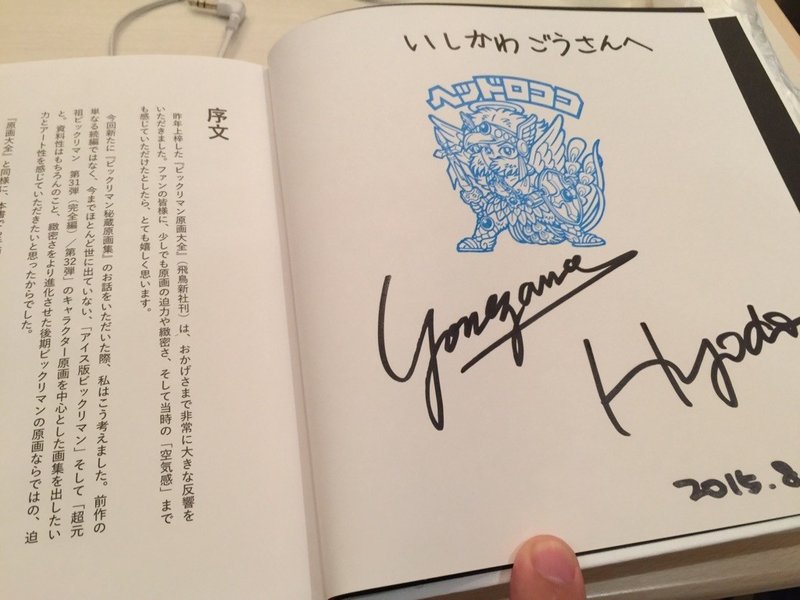 いしかわごうさんへ
ヘッドロココ
Yonezawa
Hyodo
2015.8
序文
昨年上梓した『ビックリマン原画大全』(飛鳥新社刊)は、おかげさまで非常に大きな反響を
いただきました。ファンの皆様に、少しでも原画の迫力や緻密さ、そして当時の「空気感」まで
も感じていただけたとしたら、とても嬉しく思います。
今回新たに『ビックリマン秘蔵原画集』のお話をいただいた際、私はこう考えました。前作の
単なる続編ではなく、今までほとんど世に出ていない、「アイス版ビックリマン」そして「超元
祖ビックリマン 第31弾(完全編)/第32弾」のキャラクター原画を中心とした画集を出したい
と。資料性はもちろんのこと、緻密さをより進化させた後期ビックリマンの原画ならではの、迫
力とアート性を感じていただきたいと思ったからでした。
『原画大全』と同様に、本書でも